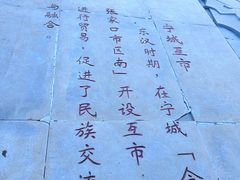 宁城互市
东汉时期，在宁城「今
张家口市区南」开设互市，
进行贸易，促进了民族交流
与融合。